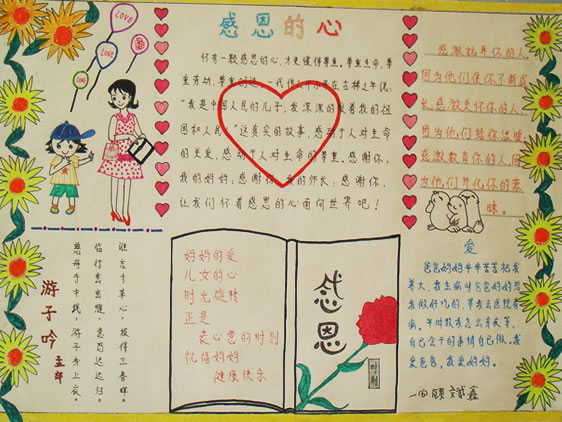 感恩的心
LOVE
LOVE
LOVE
怀有一颗感恩的心，才更懂得尊重。尊重生命，尊
重劳动，尊重创造。一代伟人邓小平在古稀之年说：
"我是中国人民的儿子，我深深的爱着我的祖
国和人民。"这真实的故事，感动于人对生命
的关爱，感动于人对生命的尊重。感谢你，
我的妈妈；感谢你，我的师长；感谢你，
让我们怀着感恩的心面向世界吧！
感激抚养你的人
因为他们使你不断成
长感激关怀你的人，
因为他们给你温暖
感激教育你的人因
为他们开化你的蒙
昧。
游子吟
孟郊
慈母手中线，游子身上衣。
临行密密缝，意恐迟迟归。
谁言寸草心，报得三春晖。
妈妈的爱
儿女的心
时光旋转
正是
表心意的时刻
祝福妈妈
健康快乐
感恩
时刻
爱
爸爸妈妈辛辛苦苦把我
养大，我生病时爸爸妈妈给
我做好吃的，带我去医院看
病，平时教我怎么穿衣等，
自己会干的事情自己做，我
爱爸爸，我爱妈妈。